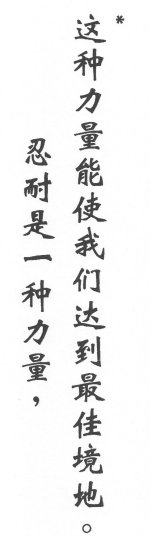 忍耐是一种力量，
*
这种力量能使我们达到最佳境地。